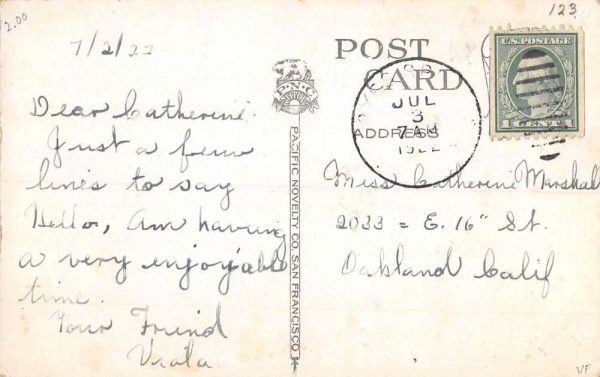 2.00
123
7/2/22
Dear Catherine:
Just a few
lines to say
Hello, Am having
a very enjoyable
time.
Your Friend
Viola
P.N.C.
PACIFIC NOVELTY CO. SAN FRANCISCO
POST
CARD
ADDRESS
JUL
3
7AM
1922
U.S. POSTAGE
1 CENT 1
Miss Catherine Marshal
2033 = E. 16" St.
Oakland Calif
VF